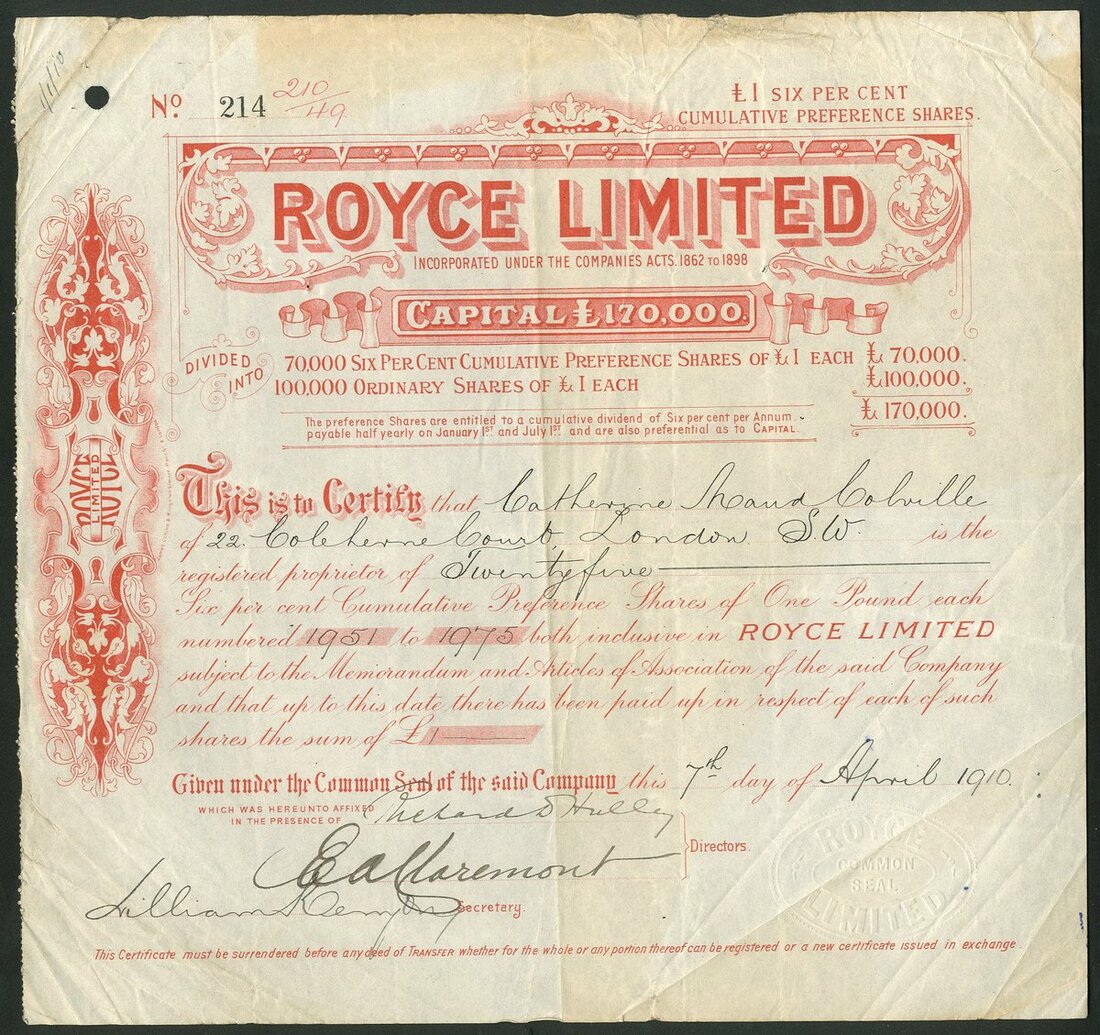 1/1/10
No. 214 210/49
£1 SIX PER CENT
CUMULATIVE PREFERENCE SHARES.
ROYCE LIMITED
INCORPORATED UNDER THE COMPANIES ACTS. 1862 TO 1898
CAPITAL £170,000.
DIVIDED INTO
70,000 SIX PER CENT CUMULATIVE PREFERENCE SHARES OF £1 EACH £ 70.000.
100,000 ORDINARY SHARES OF £1 EACH £100.000.
£ 170.000.
The preference Shares are entitled to a cumulative dividend of Six per cent per Annum.
payable half yearly on January 1ST and July 1ST and are also preferential as to CAPITAL.
ROYCE
LIMITED
ROYCE
This is to Certify that Catherine Maud Colville
of 22. Coleherne Court, London S.W. is the
registered proprietor of Twentyfive
Six per cent Cumulative Preference Shares of One Pound each
numbered 1951 to 1975 both inclusive in ROYCE LIMITED
subject to the Memorandum and Articles of Association of the said Company
and that up to this date there has been paid up in respect of each of such
shares the sum of £1
Given under the Common Seal of the said Company this 7th day of April 1910.
WHICH WAS HEREUNTO AFFIXED
IN THE PRESENCE OF
Richard D Hulley
E a Claremont
Directors.
William Kenyon Secretary.
ROYCE
COMMON
SEAL
LIMITED
This Certificate must be surrendered before any deed of TRANSFER whether for the whole or any portion thereof can be registered or a new certificate issued in exchange.